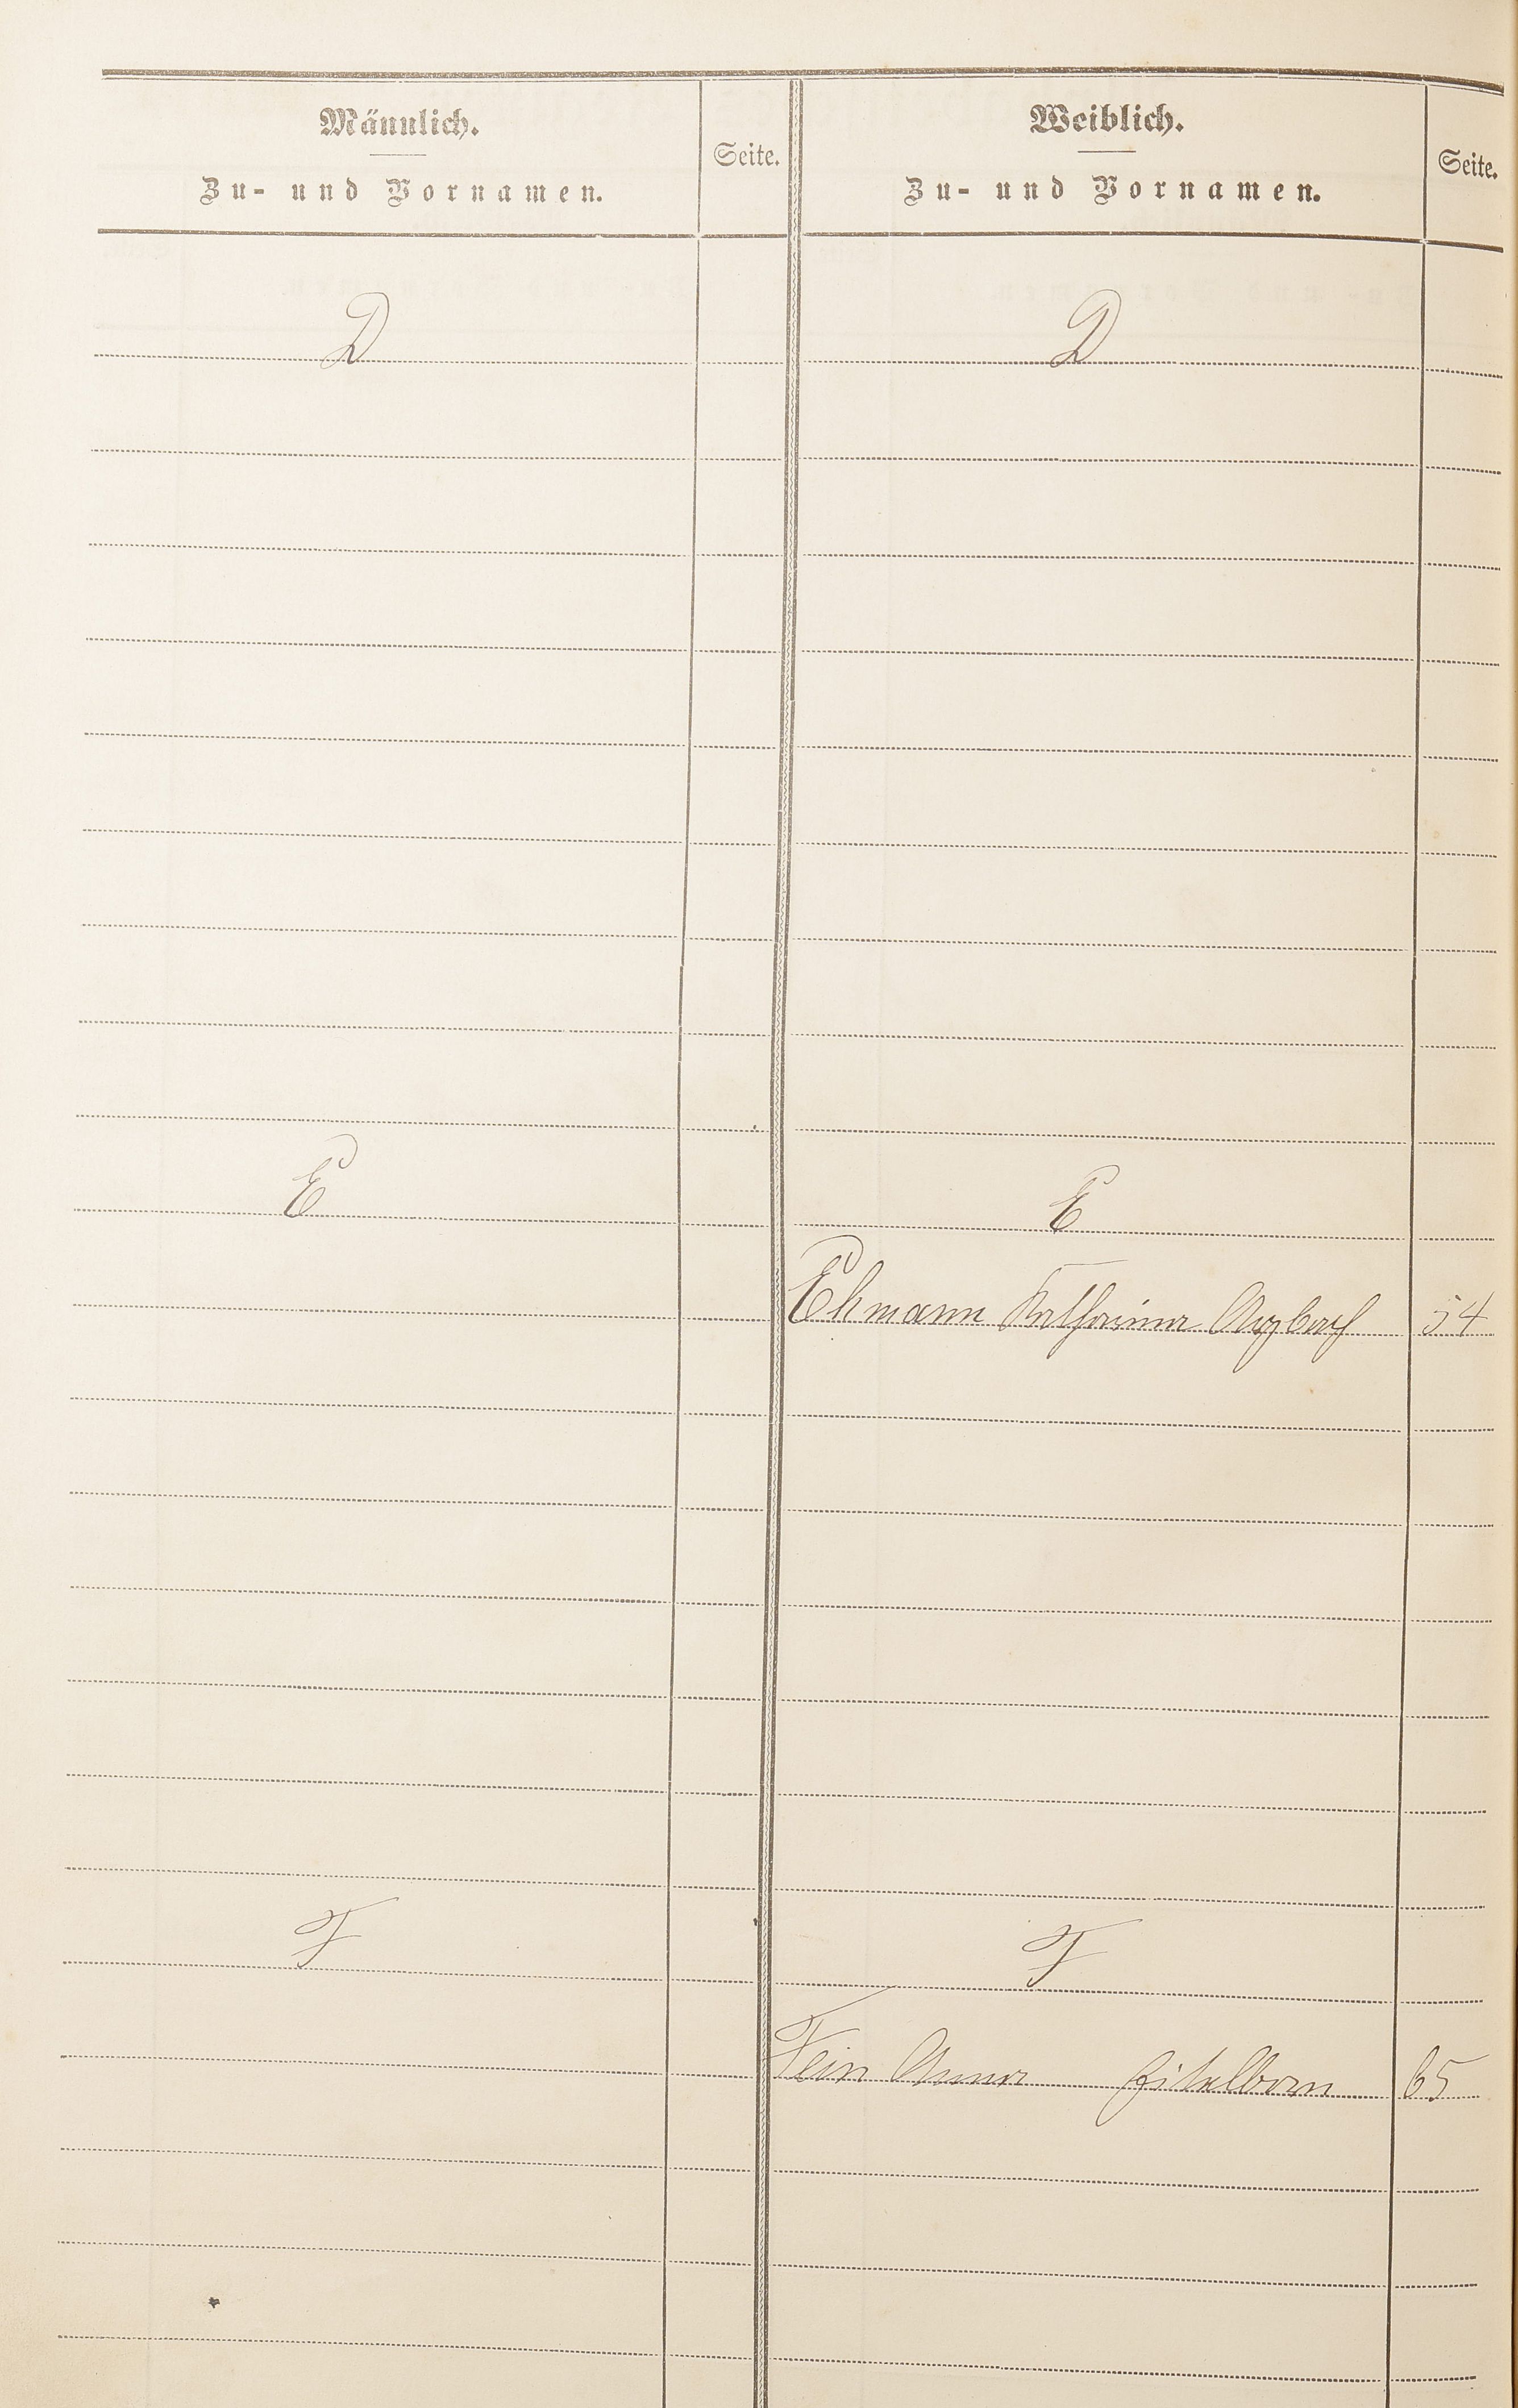 Männlich.
Zu- und Vornamen.
Seite.
Weiblich.
Zu- und Vornamen.
Seite.
D
D
E
E
Ehmann Katharina Arzbach 54
F
F
Fein Anna Eitelborn 65